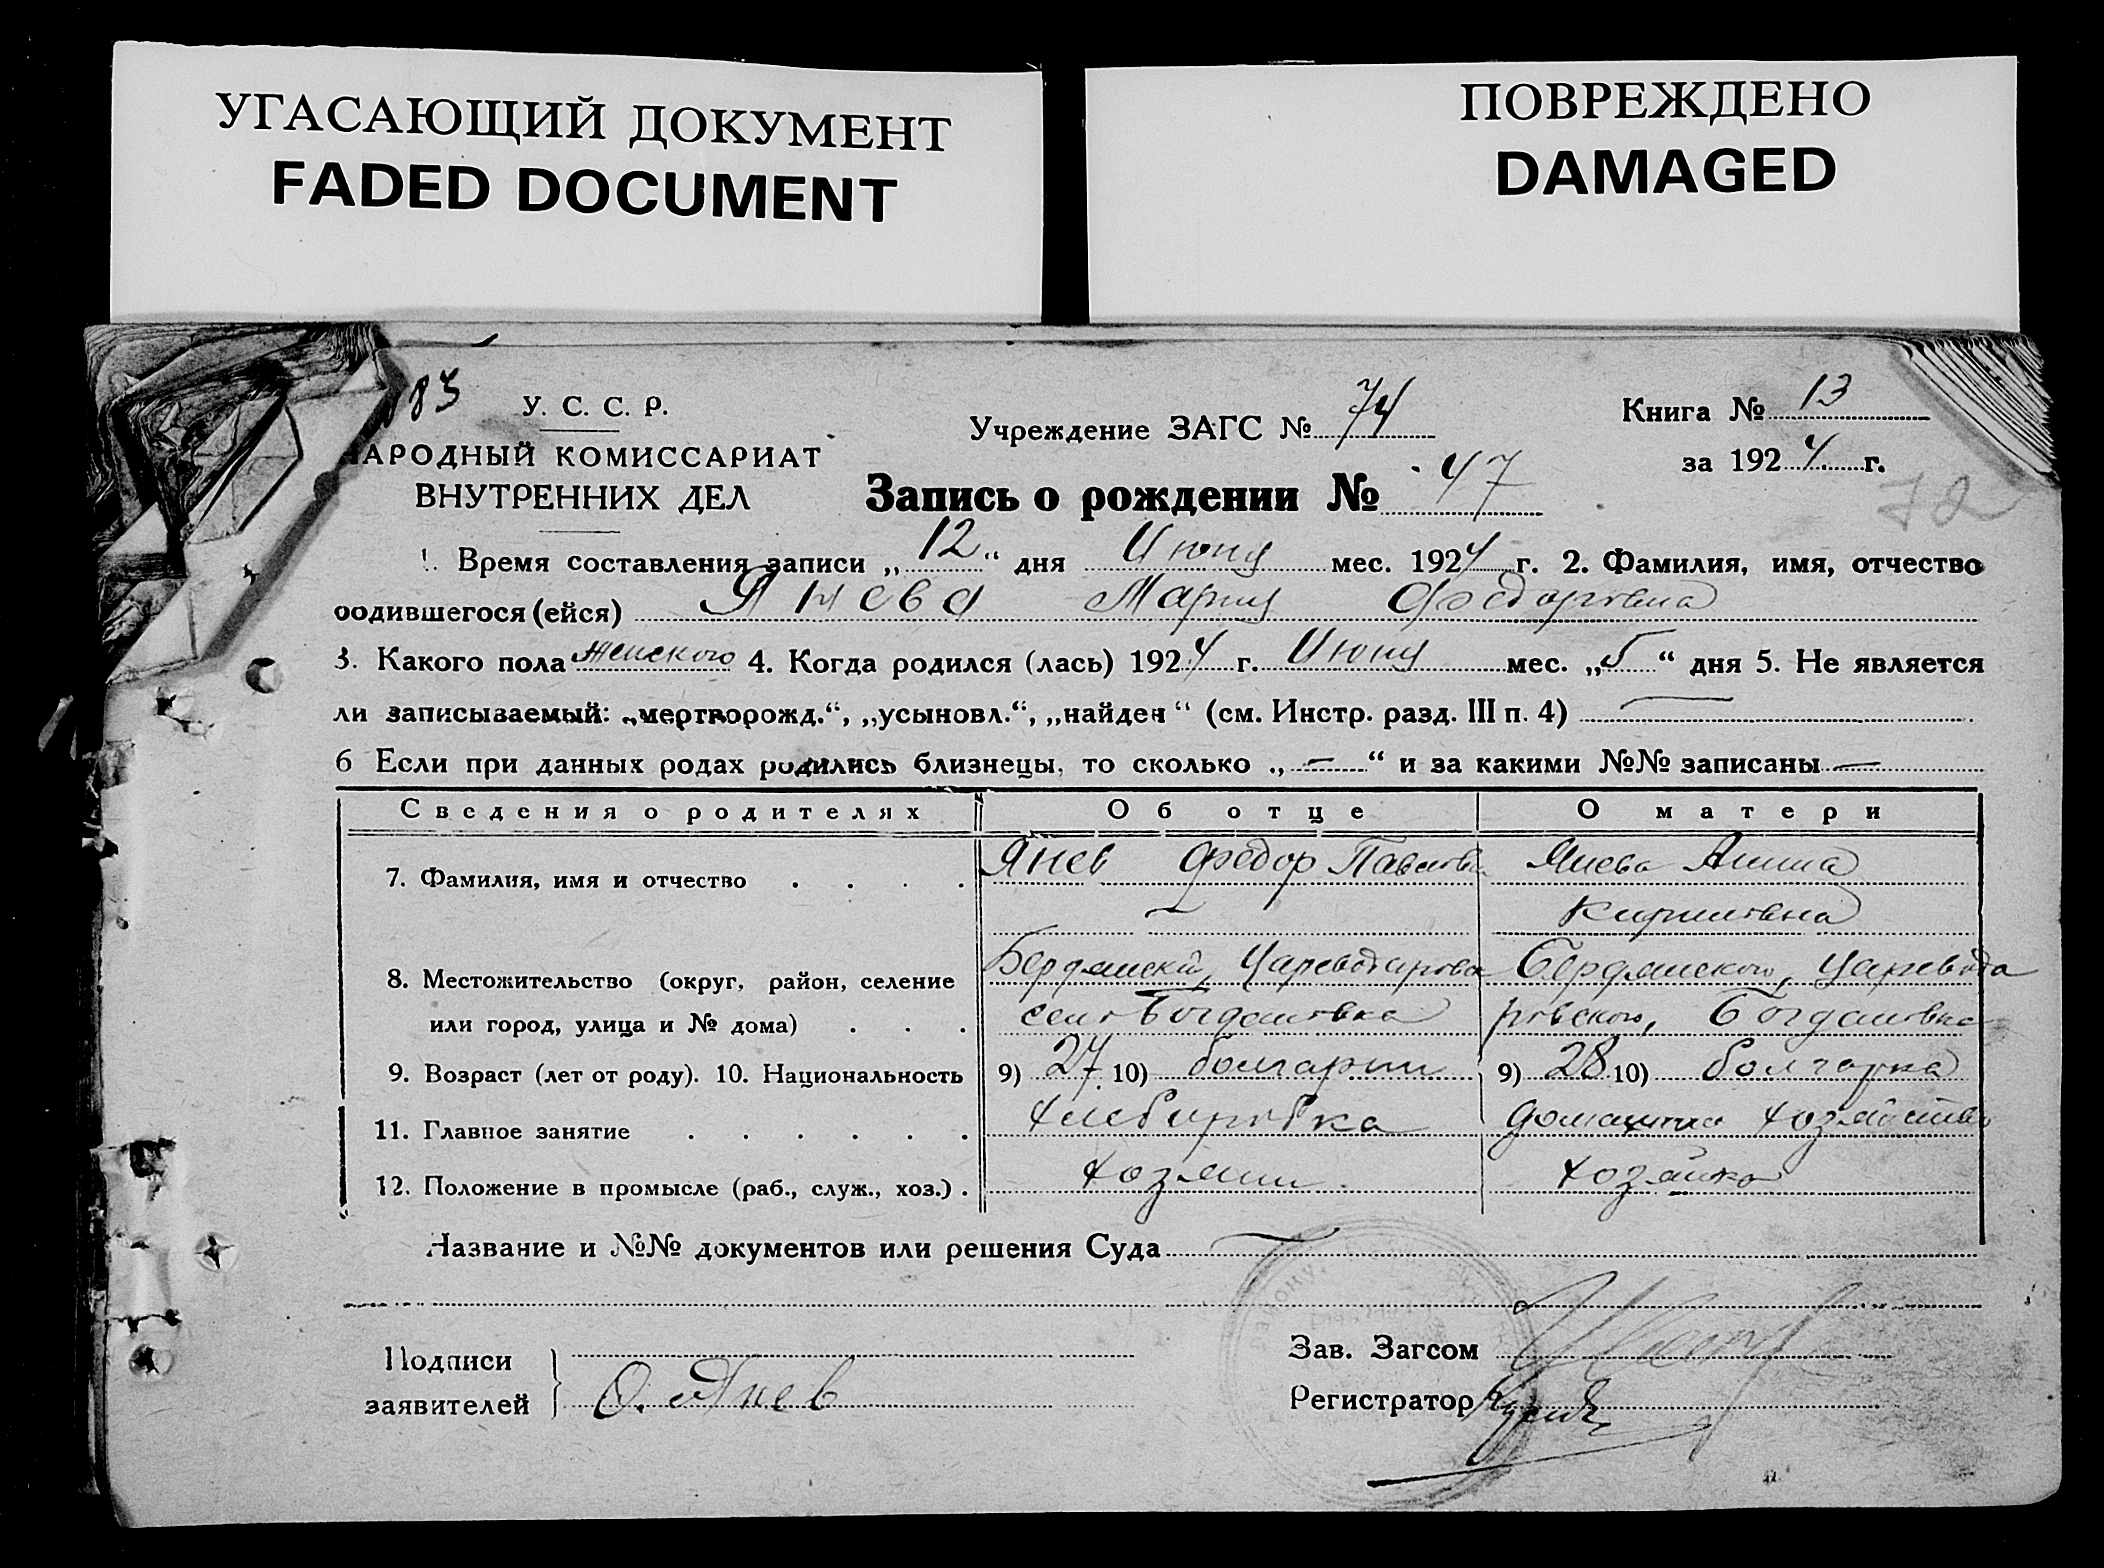 УГАСАЮЩИЙ ДОКУМЕНТ
FADED DOCUMENT
ПОВРЕЖДЕНО
DAMAGED
83
У. С. С. Р.
АРОДНЫЙ КОМИССАРИАТ
ВНУТРЕННИХ ДЕЛ
Учреждение ЗАГС № 74
Книга № 13
за 1924 г.
Запись о рождении № 47
72
1. Время составления записи „12" дня Июня мес. 1924 г. 2. Фамилия, имя, отчество
родившегося (ейся) Янева Мария Федоровна
3. Какого пола женского 4. Когда родился (лась) 1924 г. Июня мес. „5" дня 5. Не является
ли записываемый: „мертворожд.", „усыновл.", „найден" (см. Инстр. разд. III п. 4) —
6 Если при данных родах родились близнецы, то сколько „—" и за какими №№ записаны —
Сведения о родителях Об отце О матери
7. Фамилия, имя и отчество . . . . Янев Федор Павлов Янева Анна
Кириловна
8. Местожительство (округ, район, селение Бердянский, Царевода Бердянского, Царевода
или город, улица и № дома) . . . село Богдановка ровского, Богдановка
9. Возраст (лет от роду). 10. Национальность 9) 27 10) болгарин 9) 28 10) болгарка
11. Главное занятие . . . . . . хлеборобка домашнее хозяйство
12. Положение в промысле (раб., служ., хоз.) . хозяин хозяйка
Название и №№ документов или решения Суда —
Подписи
заявителей } Янев
Зав. Загсом
Регистратор